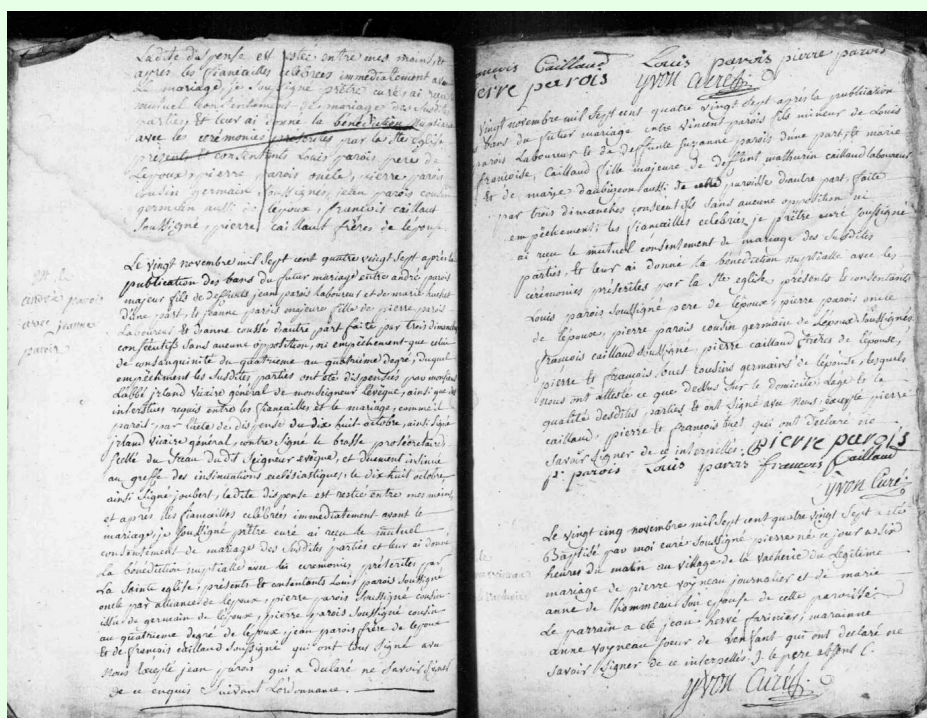 Ladite dispense est restée entre mes mains, et
après les fiancailles célébrées immédiatement avant
Le mariage, je soussigné prêtre curé ai recu
mutuel consentement de mariage des susdites
parties et leur ai donné la bénédiction nuptiale
avec les cérémonies préscrites par la Ste église
présents et consentants Louis parois pere de
L'epoux, pierre parois oncle, pierre parois
cousin germain soussignés, jean parois cousin
germain aussi de l'epoux, francois caillaut
soussigné, pierre caillaut frères de l'epouse
andré parois
avec jeanne
parois
Le vingt novembre mil sept cent quatre vingt sept après la
publication des bans du futur mariage entre andré parois
majeur fils de deffunts jean parois laboureur et de marie
d'une part, et jeanne parois majeure fille de pierre parois
Laboureur et jeanne cousse d'autre part faite par trois dimanches
consécutifs sans aucune opposition, ni empêchement que celui
de consanguinité du quatrieme au quatrieme degré, duquel
empêchement les susdites parties ont été dispensés par monsieur
L'abbé irland vicaire général de monseigneur l'évêque, ainsi que des
interstices requis entre les fiancailles et le mariage, comme il
paroit par l'acte de dispense du dix huit octobre, ainsi signé
irland vicaire général, contre signé le brosse prosecrétaire
scellé du sceau dudit seigneur evêque, et duement insinué
au greffe des insinuations ecclésiastiques, le dix huit octobre
ainsi signé joubert, ladite dispense est restée entre mes mains
et après les fiancailles célébrées immédiatement avant le
mariage, je soussigné prêtre curé ai recu le mutuel
consentement de mariage des susdites parties et leur ai donné
La bénédiction nuptialle avec les cérémonies, préscrites par
La Sainte eglise, présents et consentants Louis parois soussigné
oncle par alliance de l'epoux, pierre parois soussigné cousin
issu de germain de l'epoux, pierre parois soussigné cousin
au quatrieme degré de l'epoux, jean parois frère de l'epoux
et de francois caillaud soussigné qui ont tous signé avec
Nous excepté jean parois qui a declaré ne savoir signer
de ce enquis suivant l'ordonnance.
francois Caillaud Louis parois pierre parois
pierre parois yvon curé
vingt novembre mil sept cent quatre vingt sept après la publication
bans du futur mariage entre vincent parois fils mineur de Louis
parois Laboureur et de deffunte suzanne parois d'une part, et marie
francoise Caillaud fille majeure de deffunt mathurin caillaud laboureur
et de marie d'aubigeon aussi de cette paroisse d'autre part, faite
par trois dimanches consecutifs sans aucune opposition ni
empêchement; les fiancailles célébrées je prêtre curé soussigné
ai recu le mutuel consentement de mariage des susdites
parties, et leur ai donné la bénédiction nuptialle avec les
cérémonies préscrites par la Ste eglise, présents et consentants
Louis parois soussigné pere de l'epoux, pierre parois oncle
de l'epouse, pierre parois cousin germain de l'epoux soussignés
francois caillaud soussigné, pierre caillaud frères de l'epouse,
pierre et francois cousins germains de l'epouse, lesquels
nous ont attesté ce que dessus sur le domicile l'age et la
qualité desdites parties et ont signé avec Nous, excepté pierre
caillaud, pierre et francois qui ont declaré ne
savoir signer de ce interpellés. pierre parois
parois Louis parois francois Caillaud
yvon Curé
Le vingt cinq novembre mil sept cent quatre vingt sept a été
Baptisé par moi curé soussigné pierre né ce jour a six
heures du matin au village de la vacherie du légitime
mariage de pierre voyneau journalier et de marie
anne de l'hommeau son epouse de cette paroisse.
Le parrain a été jean hervé farinier, maraine
anne voyneau soeur de l'enfant qui ont declaré ne
savoir signer de ce interpellés. le pere absent.
yvon Curé